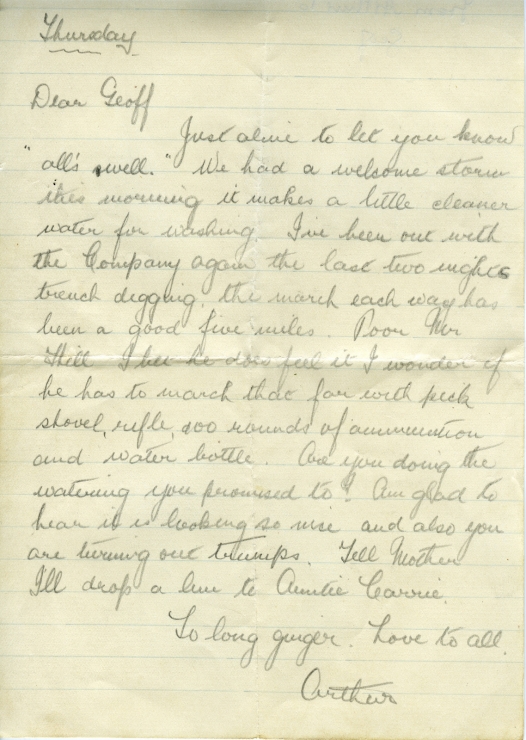 Thursday
Dear Geoff
Just alive to let you know
"all's well." We had a welcome storm
this morning it makes a little cleaner
water for washing I've been out with
the Company again the last two nights
trench digging, the march each way has
been a good five miles. Poor Mr
Hill I bet he does feel it I wonder if
he has to march that far with pick
shovel, rifle, 200 rounds of ammunition
and water bottle. Are you doing the
watering you promised to? Am glad to
hear it is looking so nice and also you
are turning out trumps. Tell Mother
I'll drop a line to Auntie Carrie.
So long ginger. Love to all.
Arthur